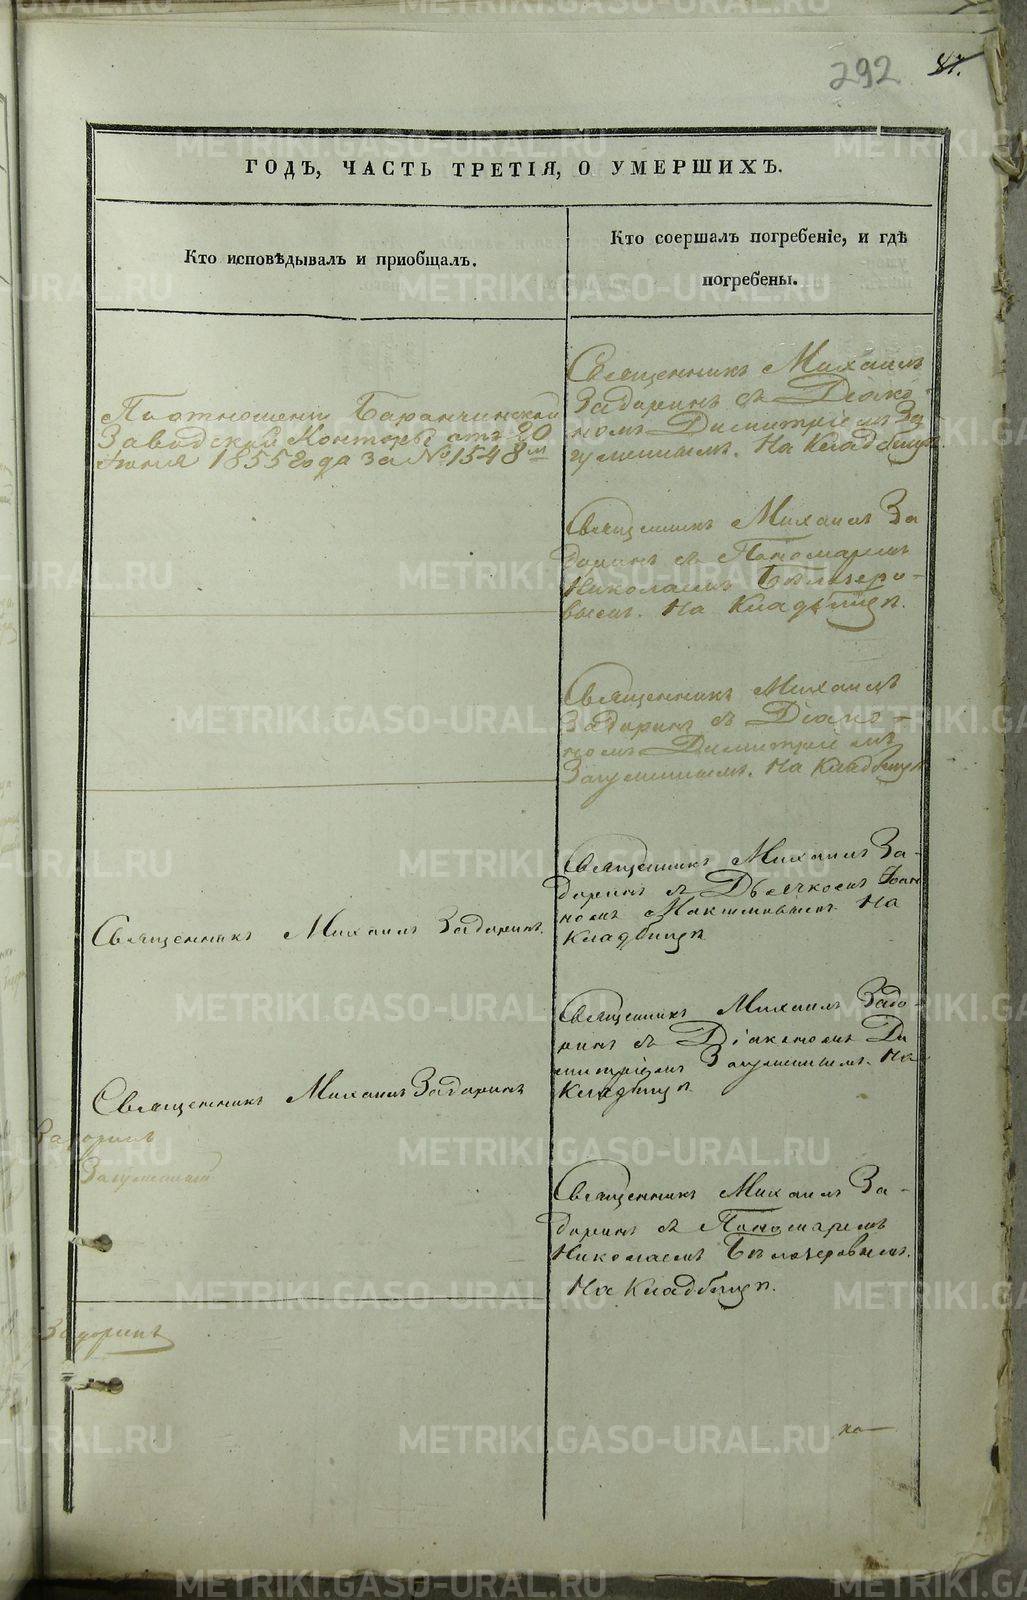 292 87.
ГОДѢ, ЧАСТЬ ТРЕТІЯ, О УМЕРШИХЪ.
Кто исповѣдывалъ и пріобщалъ.
Кто соершалъ погребеніе, и гдѣ
погребены.
По отношенію Баранчинской
Заводской Конторы отъ 20
Іюня 1855 года за № 1548м
Священникъ Михаилъ
Задоринъ съ Діако-
номъ Димитріемъ За
гуменнымъ. На Кладбищѣ.
Священникъ Михаилъ За
доринъ съ Пономаремъ
Николаемъ Бѣлозеро-
вымъ. На Кладбищѣ.
Священникъ Михаилъ
Задоринъ съ Діако-
номъ Димитріемъ
Загуменнымъ. На Кладбищѣ
Священникъ Михаилъ Задоринъ.
Священникъ Михаилъ За-
доринъ съ Дьячкомъ
номъ Максимовымъ. На
Кладбищѣ
Священникъ Михаилъ Задоринъ
Священникъ Михаилъ Задо-
ринъ съ Діакономъ Ди
митріемъ Загуменнымъ. На
Кладбищѣ
Священникъ Михаилъ За-
доринъ съ Пономаремъ
Николаемъ Бѣлозеровымъ.
На Кладбищѣ.
Задоринъ
Загуменный
Задоринъ
METRIKI.GASO-URAL.RU